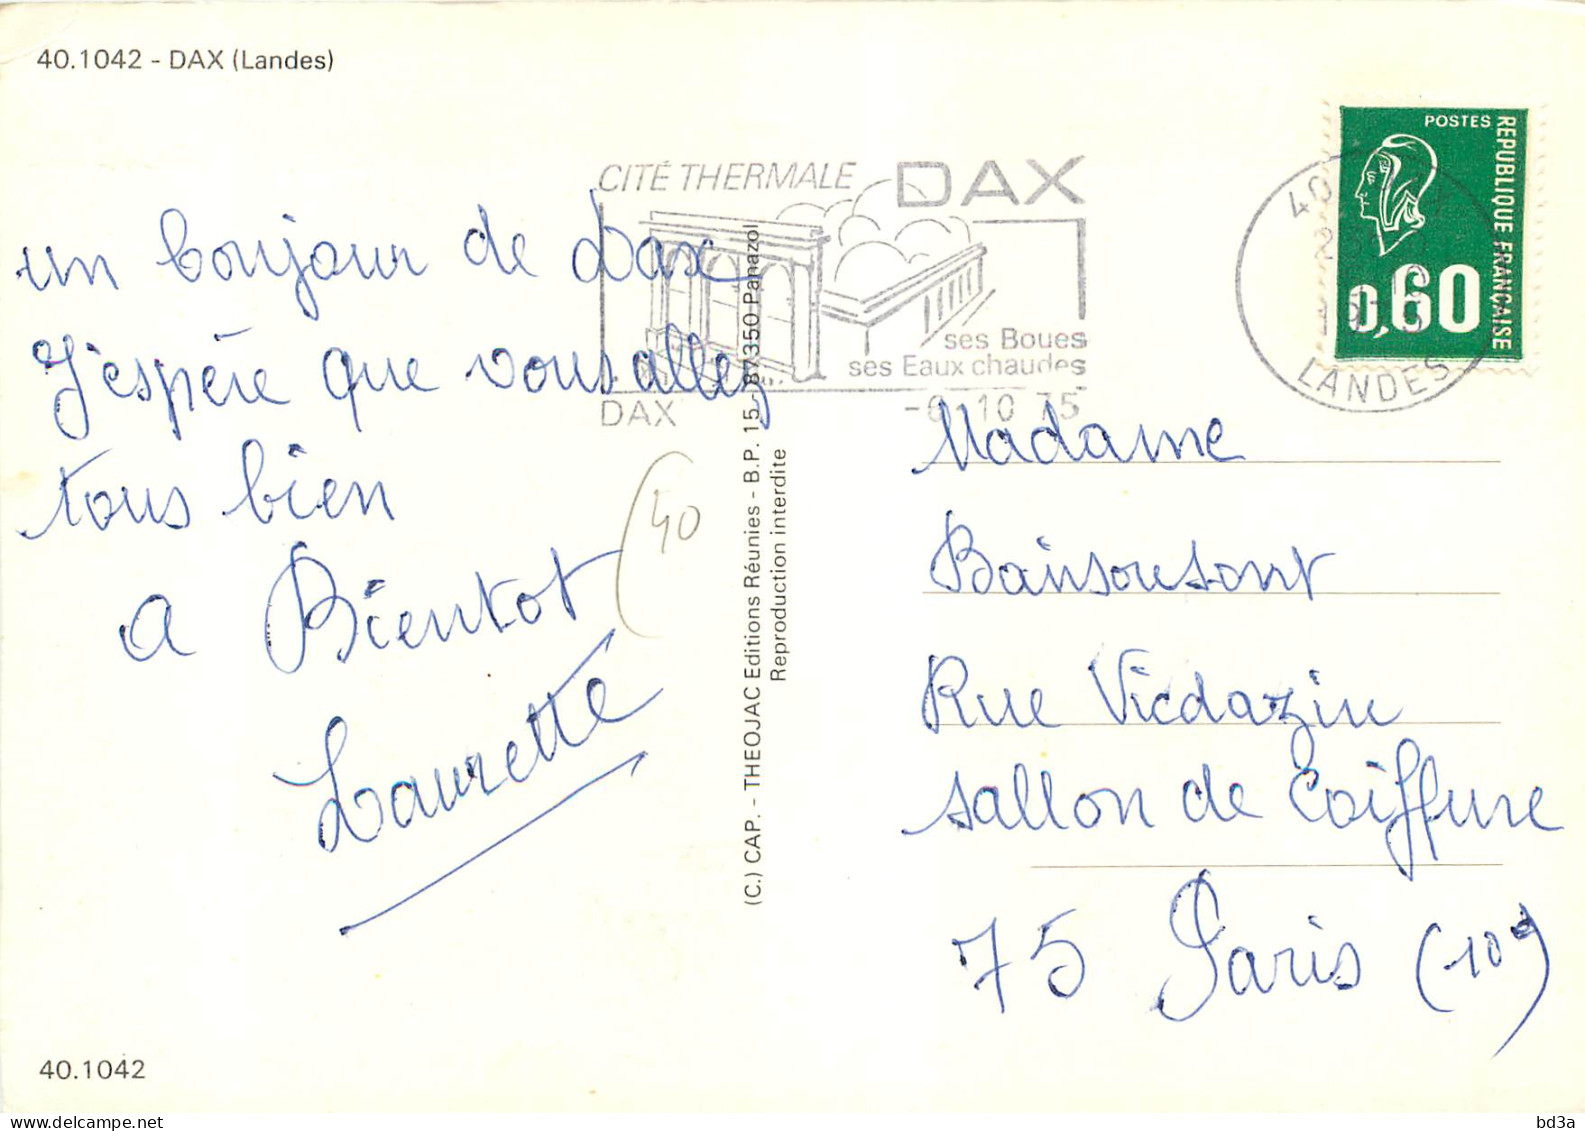 40.1042 - DAX (Landes)
POSTES
REPUBLIQUE FRANÇAISE
0,60
40
LANDES
CITÉ THERMALE DAX
ses Boues
ses Eaux chaudes
DAX
10 75
un bonjour de Dax
J'espère que vous allez
tous bien
a Bientot
Laurette
(40
(C.) CAP. - THEOJAC Editions Réunies - B.P. 15 - 87350 Panazol
Reproduction interdite
Madame
Rue Vicdazir
sallon de Coiffure
75 Paris (10e)
40.1042
bd3a